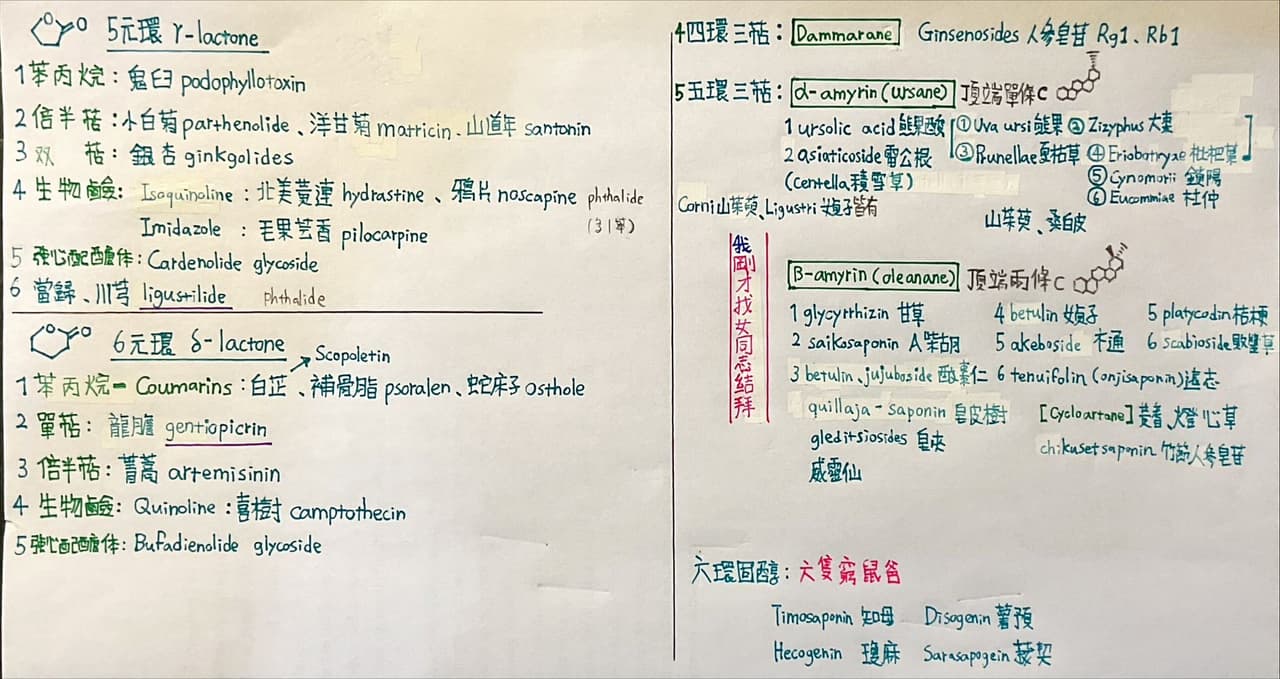 5元環 γ-lactone
1 苯丙烷：鬼臼 podophyllotoxin
2 倍半萜：小白菊 parthenolide、洋甘菊 matricin、山道年 santonin
3 双 萜：銀杏 ginkgolides
4 生物鹼：Isoquinoline：北美黃連 hydrastine、鴉片 noscapine phthalide
(川芎)
Imidazole：毛果芸香 pilocarpine
5 強心配醣体：Cardenolide glycoside
6 當歸、川芎 ligustilide phthalide
6元環 δ-lactone
Scopoletin
1 苯丙烷－Coumarins：白芷、補骨脂 psoralen、蛇床子 osthole
2 單萜：龍膽 gentiopicrin
3 倍半萜：菁蒿 artemisinin
4 生物鹼：Quinoline：喜樹 camptothecin
5 強心配醣体：Bufadienolide glycoside
4 四環三萜：Dammarane Ginsenosides 人參皂苷 Rg1、Rb1
5 五環三萜：α-amyrin (ursane) 頂端單條C
1 ursolic acid 熊果酸 ① Uva ursi 熊果 ② Zizyphus 大棗
2 asiaticoside 雷公根 ③ Prunellae 夏枯草 ④ Eriobotryae 枇杷葉
(Centella 積雪草) ⑤ Cynomorii 鎖陽
⑥ Eucommiae 杜仲
Corni 山茱萸、Ligustri 女貞子皆有
山茱萸、桑白皮
我剛才找女同志結拜
β-amyrin (oleanane) 頂端兩條C
1 glycyrrhizin 甘草 4 betulin 女貞子 5 platycodin 桔梗
2 saikosaponin A 柴胡 5 akeboside 木通 6 scabioside 敗醬草
3 betulin、jujuboside 酸棗仁 6 tenuifolin (onjisaponin) 遠志
quillaja-saponin 皂皮樹 [Cycloartane] 黃耆、燈心草
gleditsiosides 皂夾 chikusetsaponin 竹節人參皂苷
威靈仙
六環固醇：六隻窮鼠爸
Timosaponin 知母 Disogenin 薯預
Hecogenin 瓊麻 Sarasapogein 菝契